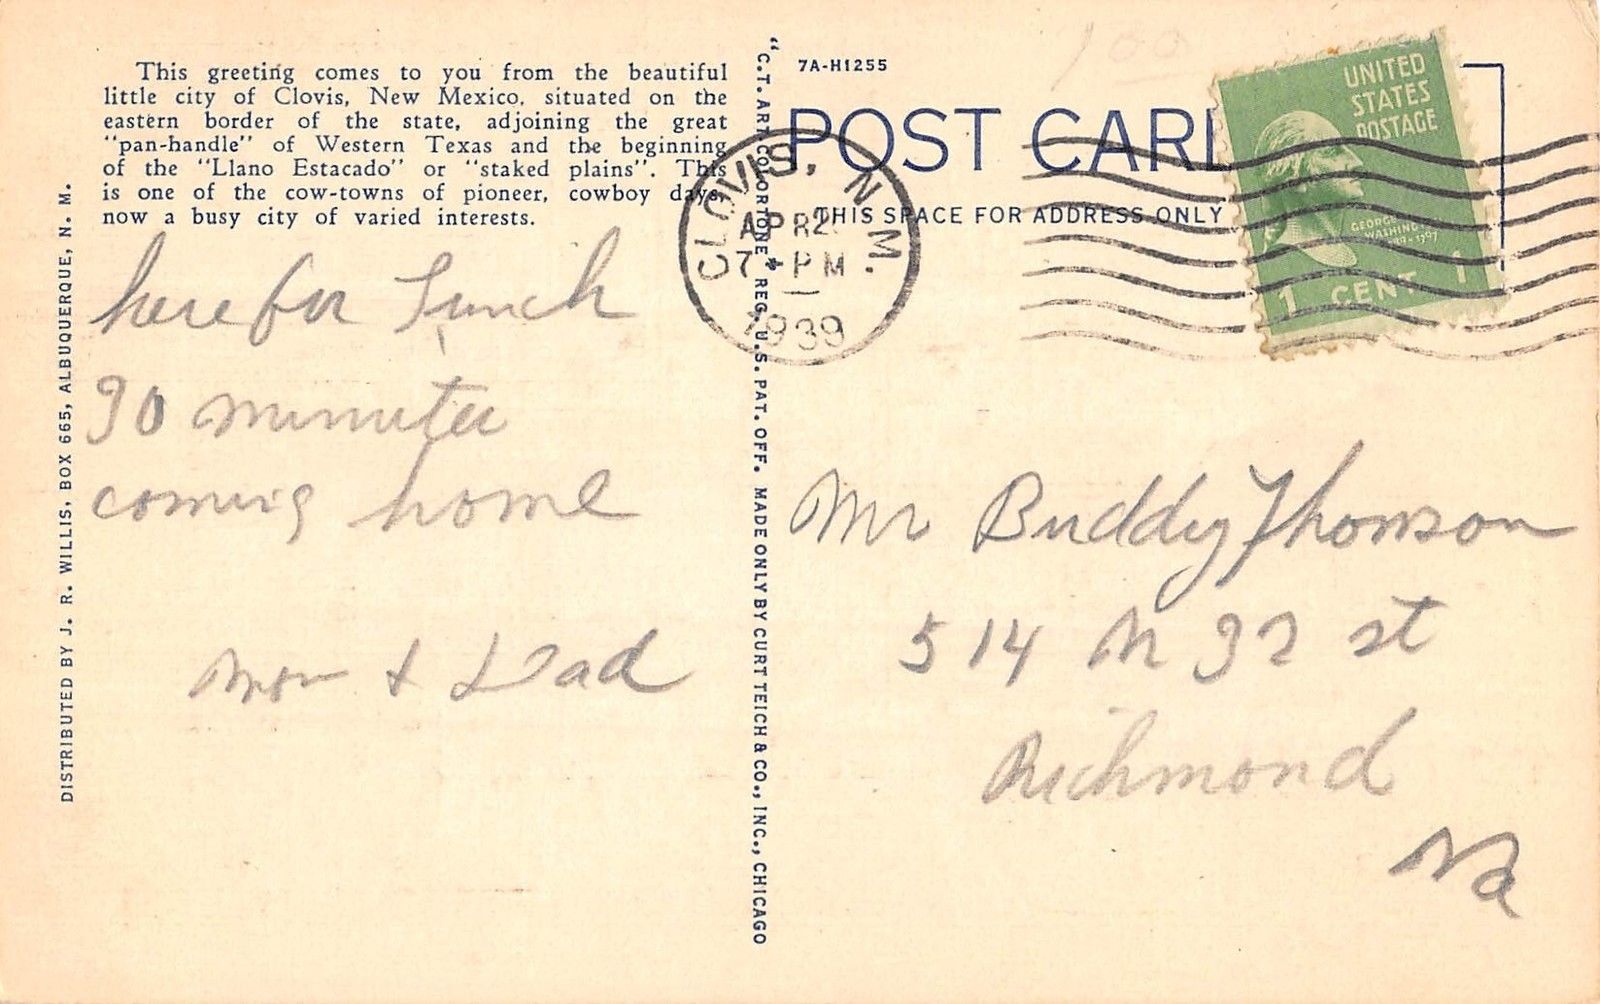 This greeting comes to you from the beautiful
little city of Clovis, New Mexico, situated on the
eastern border of the state, adjoining the great
"pan-handle" of Western Texas and the beginning
of the "Llano Estacado" or "staked plains". This
is one of the cow-towns of pioneer, cowboy days,
now a busy city of varied interests.
here for Lunch
30 minutes
coming home
Mom & Dad
DISTRIBUTED BY J. R. WILLIS, BOX 665, ALBUQUERQUE, N. M.
"C.T. ART-COLORTONE" REG. U.S. PAT. OFF. MADE ONLY BY CURT TEICH & CO., INC., CHICAGO
7A-H1255
100
POST CARD
THIS SPACE FOR ADDRESS ONLY
CLOVIS, N. M.
APR 2
7 - PM
1939
UNITED
STATES
POSTAGE
GEORGE
WASHINGTON
1 CENT 1
Mr Buddy Thomson
514 N 32 st
Richmond
Va